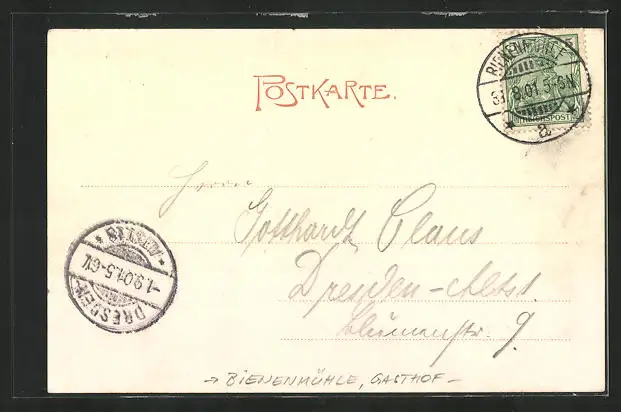 POSTKARTE.
BIENENMÜHLE
31 8.01.5-6N.
* a *
5
REICHSPOST
Herrn
Gotthardt Claus
Dresden-Altst.
Blumenstr. 9.
DRESDEN-ALTST. 18 *
-1.9.01.5-6V.
→ BIENENMÜHLE, GASTHOF -